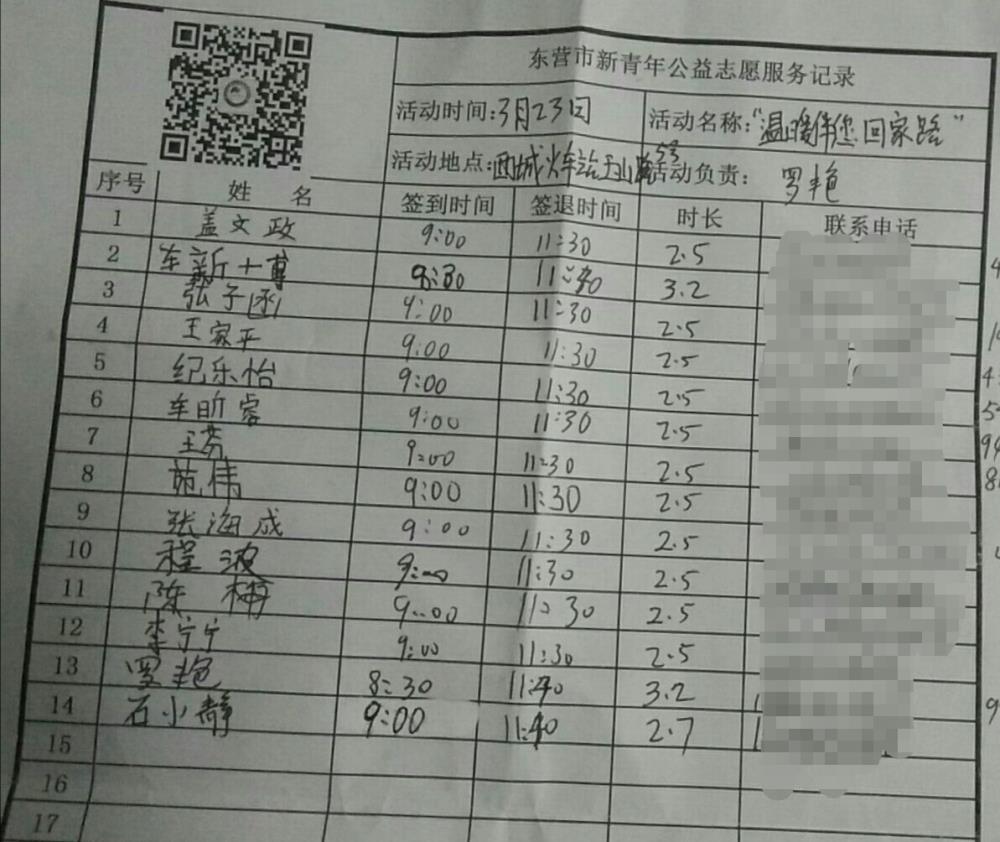 东营市新青年公益志愿服务记录
活动时间:3月23日 活动名称:"温暖伴您回家路"
活动地点:西城火车站天山路53 活动负责: 罗艳
序号 姓 名 签到时间 签退时间 时长 联系电话
1 盖文政 9:00 11:30 2.5
2 车新 8:30 11:40 3.2
3 张子函 9:00 11:30 2.5
4 王家平 9:00 11:30 2.5
5 纪乐怡 9:00 11:30 2.5
6 车昕睿 9:00 11:30 2.5
7 王芬 9:00 11:30 2.5
8 施伟 9:00 11:30 2.5
9 张海成 9:00 11:30 2.5
10 程波 9:00 11:30 2.5
11 陈楠 9:00 11:30 2.5
12 李宁宁 9:00 11:30 2.5
13 罗艳 8:30 11:40 3.2
14 石小静 9:00 11:40 2.7
15
16
17